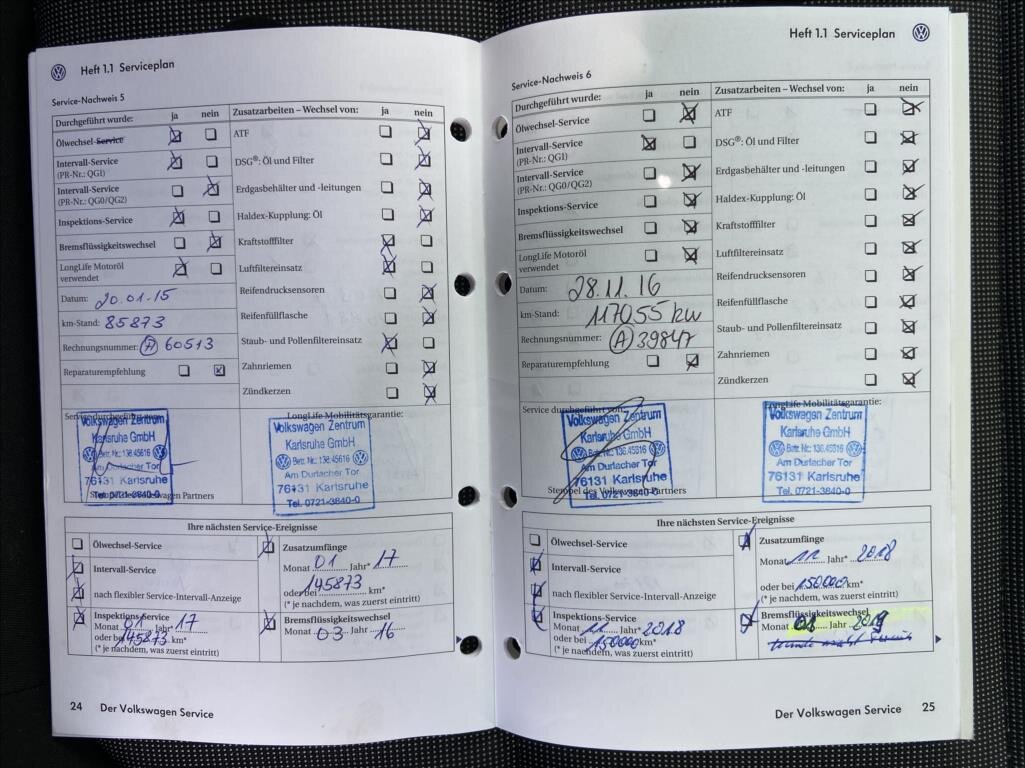 Heft 1.1 Serviceplan
Service-Nachweis 5
Durchgeführt wurde: ja nein
Ölwechsel-Service
Intervall-Service
(PR-Nr.: QGI)
Intervall-Service
(PR-Nr.: QG0/QG2)
Inspektions-Service
Bremsflüssigkeitswechsel
LongLife Motoröl
verwendet
Datum: 20.01.15
km-Stand: 85873
Rechnungsnummer: A 60513
Reparaturempfehlung
Zusatzarbeiten – Wechsel von: ja nein
ATF
DSG®: Öl und Filter
Erdgasbehälter und -leitungen
Haldex-Kupplung: Öl
Kraftstofffilter
Luftfiltereinsatz
Reifendrucksensoren
Reifenfüllflasche
Staub- und Pollenfiltereinsatz
Zahnriemen
Zündkerzen
Service durchgeführt von:
Volkswagen Zentrum
Karlsruhe GmbH
Betr. Nr.: 136.45616
Am Durlacher Tor
76131 Karlsruhe
Tel. 0721-3840-0
Stempel des Volkswagen Partners
LongLife Mobilitätsgarantie:
Volkswagen Zentrum
Karlsruhe GmbH
Betr. Nr.: 136.45616
Am Durlacher Tor
76131 Karlsruhe
Tel. 0721-3840-0
Ihre nächsten Service-Ereignisse
Ölwechsel-Service
Intervall-Service
nach flexibler Service-Intervall-Anzeige
Inspektions-Service
Monat 01 Jahr* 17
oder bei 145873 km*
(* je nachdem, was zuerst eintritt)
Zusatzumfänge
Monat 01 Jahr* 17
oder bei 145873 km*
(* je nachdem, was zuerst eintritt)
Bremsflüssigkeitswechsel
Monat 03 Jahr 16
24 Der Volkswagen Service
Heft 1.1 Serviceplan
Service-Nachweis 6
Durchgeführt wurde: ja nein
Ölwechsel-Service
Intervall-Service
(PR-Nr.: QGI)
Intervall-Service
(PR-Nr.: QG0/QG2)
Inspektions-Service
Bremsflüssigkeitswechsel
LongLife Motoröl
verwendet
Datum: 28.11.16
km-Stand: 117055 km
Rechnungsnummer: A 39847
Reparaturempfehlung
Zusatzarbeiten – Wechsel von: ja nein
ATF
DSG®: Öl und Filter
Erdgasbehälter und -leitungen
Haldex-Kupplung: Öl
Kraftstofffilter
Luftfiltereinsatz
Reifendrucksensoren
Reifenfüllflasche
Staub- und Pollenfiltereinsatz
Zahnriemen
Zündkerzen
Service durchgeführt von:
Volkswagen Zentrum
Karlsruhe GmbH
Betr. Nr.: 136.45616
Am Durlacher Tor
76131 Karlsruhe
Tel. 0721-3840-0
Stempel des Volkswagen Partners
LongLife Mobilitätsgarantie:
Volkswagen Zentrum
Karlsruhe GmbH
Betr. Nr.: 136.45616
Am Durlacher Tor
76131 Karlsruhe
Tel. 0721-3840-0
Ihre nächsten Service-Ereignisse
Ölwechsel-Service
Intervall-Service
nach flexibler Service-Intervall-Anzeige
Inspektions-Service
Monat 11 Jahr* 2018
oder bei 150000 km*
(* je nachdem, was zuerst eintritt)
Zusatzumfänge
Monat 11 Jahr* 2018
oder bei 150000 km*
(* je nachdem, was zuerst eintritt)
Bremsflüssigkeitswechsel
Monat Jahr 2019
Der Volkswagen Service 25